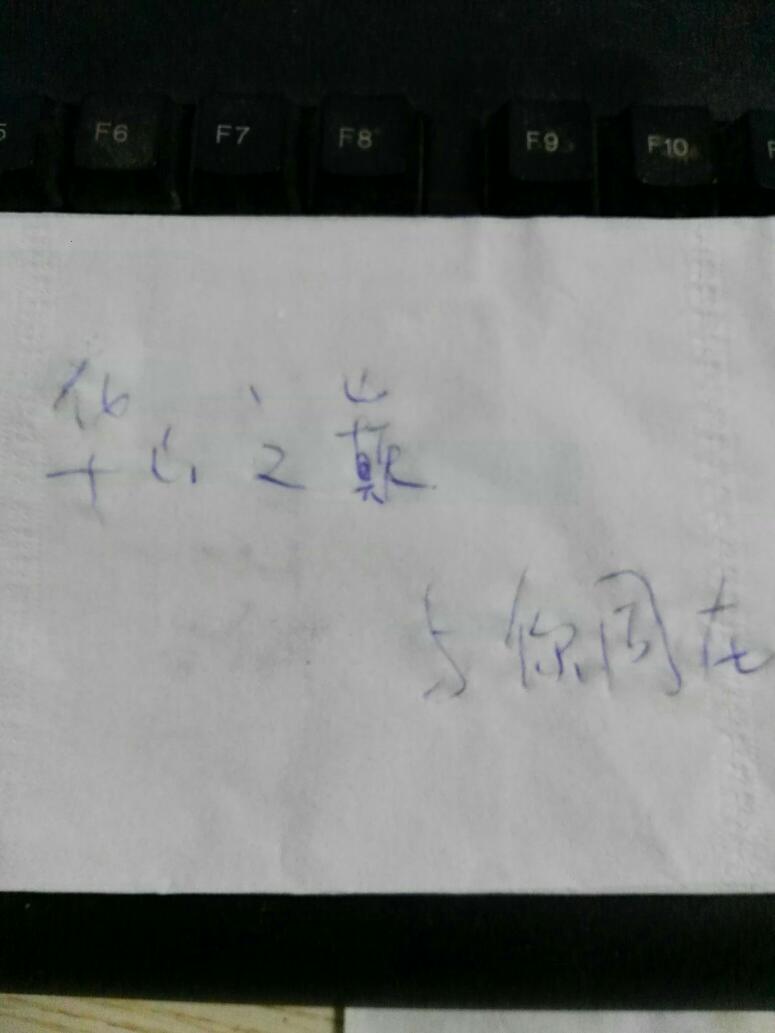 F6 F7 F8 F9 F10
华山之巅
与你同在